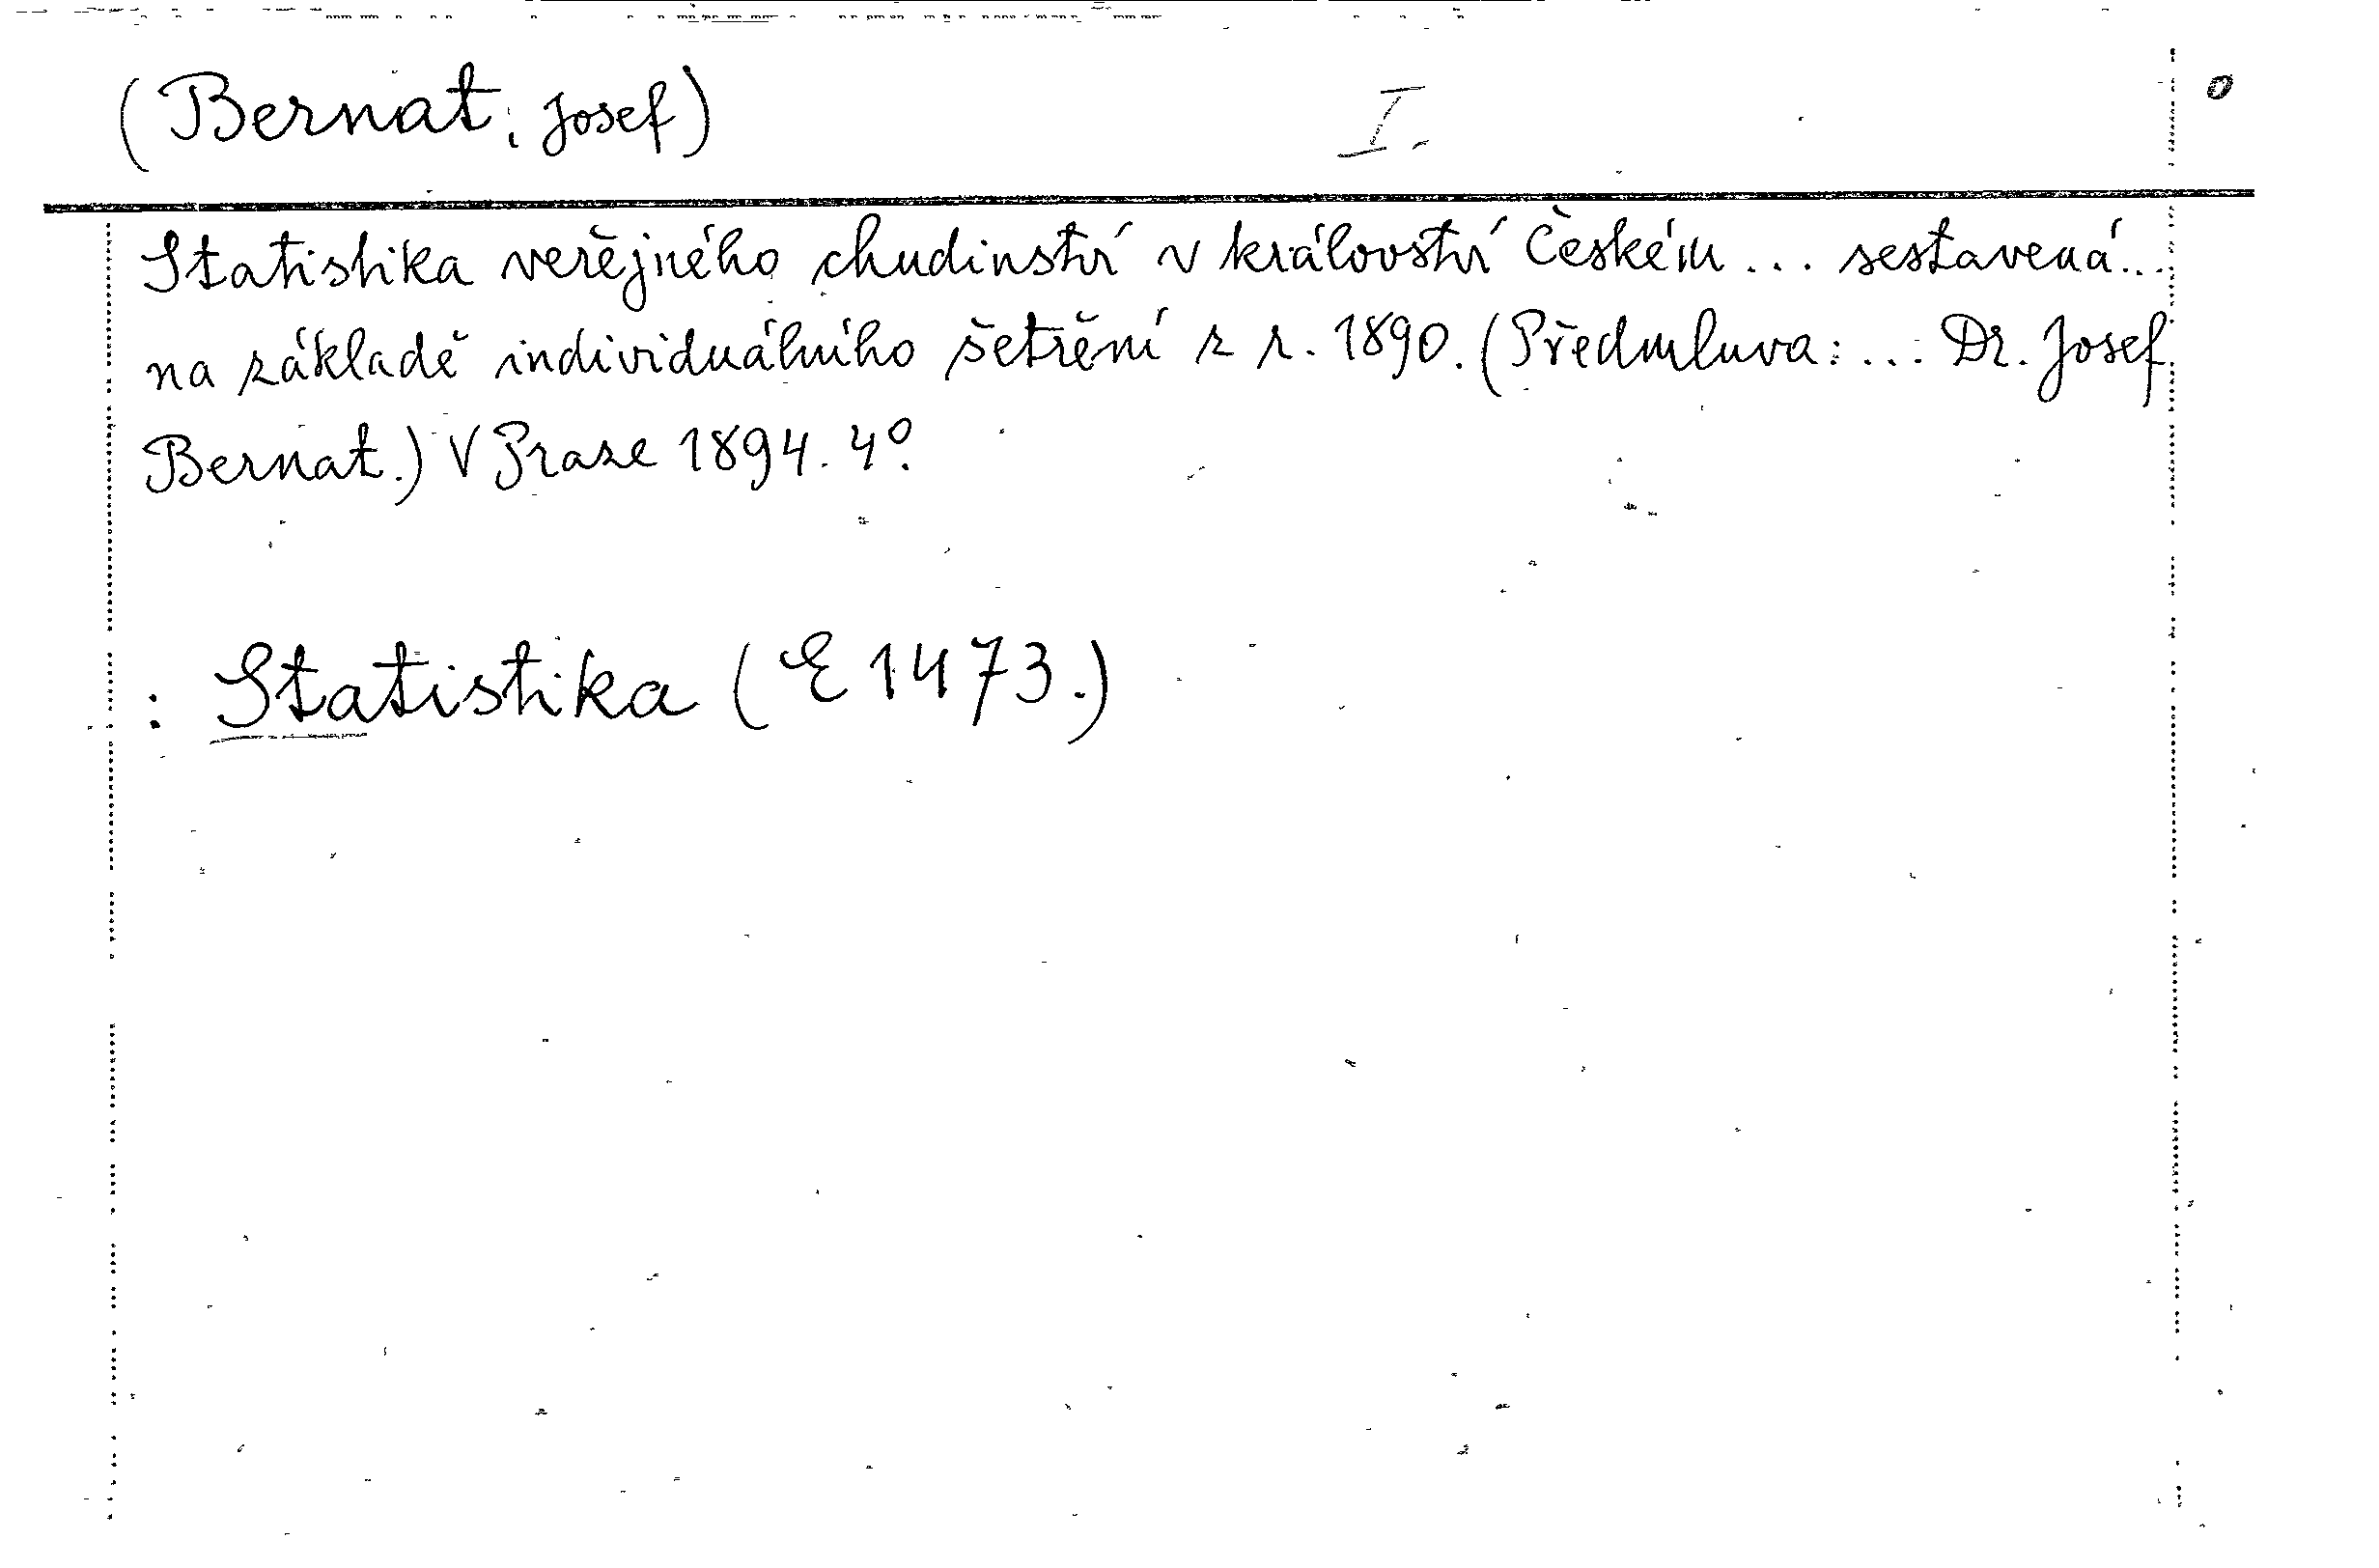 (Bernat, Josef) I. 0
Statistika veřejného chudinství v království Českém ... sestavená...
na základě individuálního šetření z r. 1890. (Předmluva: ... Dr. Josef
Bernat.) V Praze 1894. 4º.
: Statistika (E 1473.)